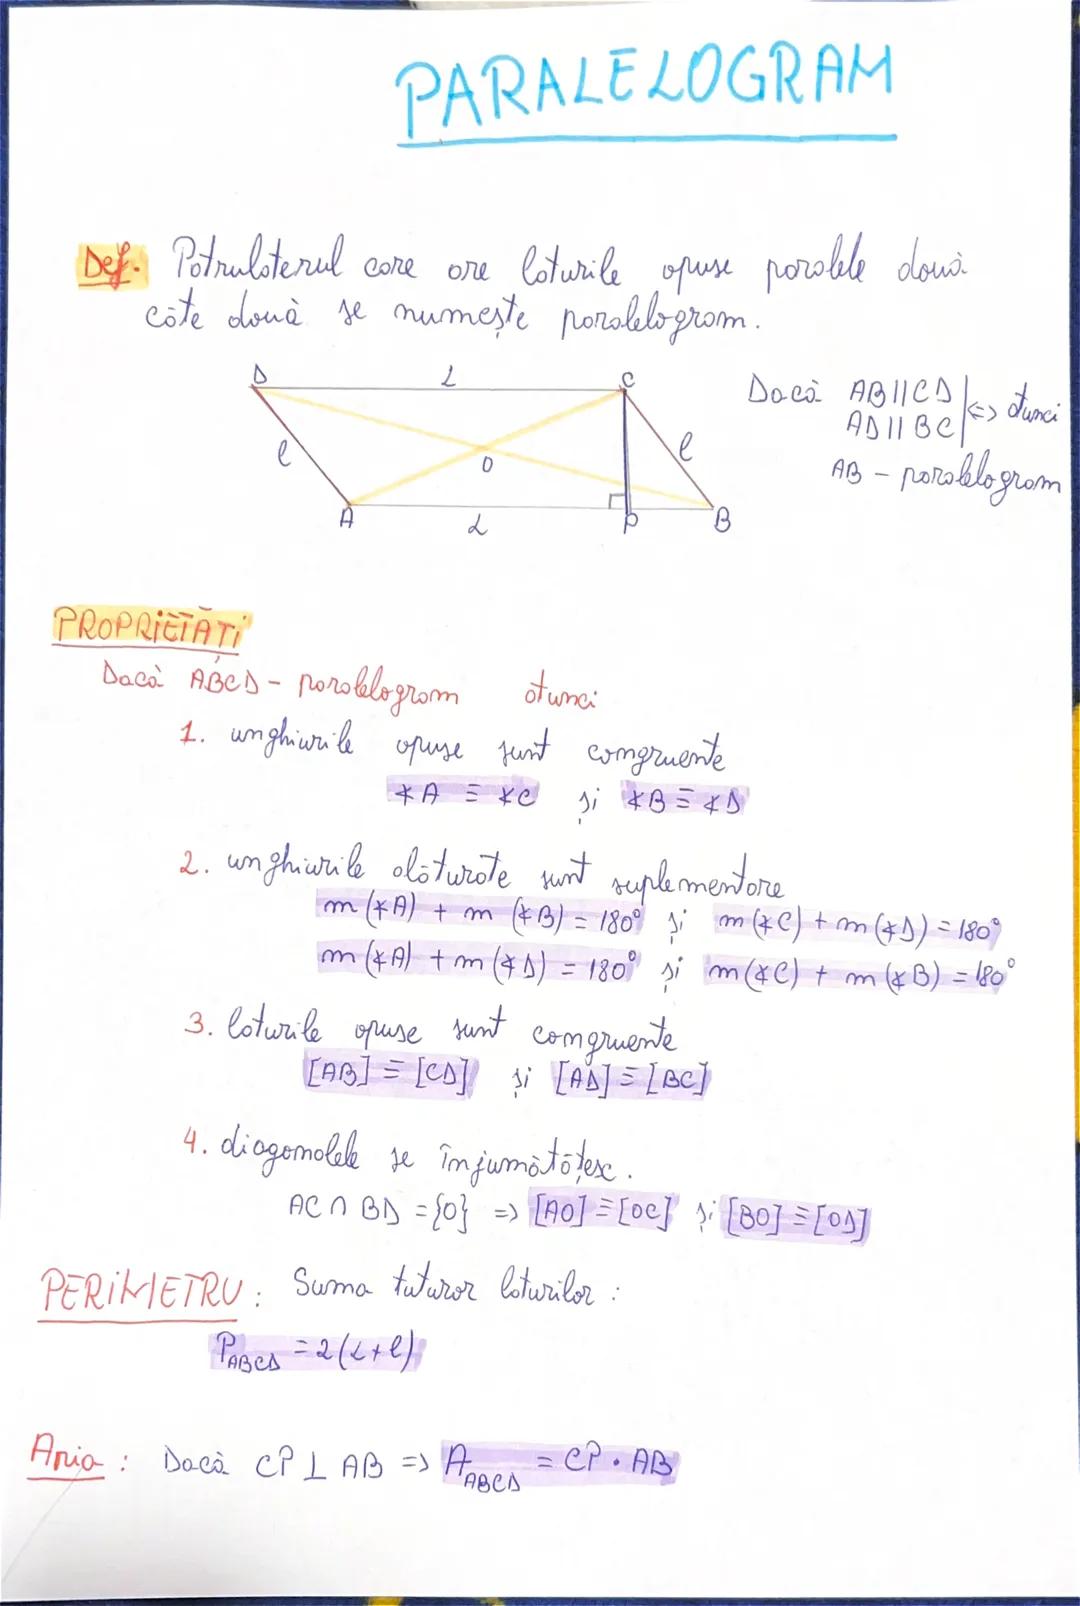 PARALELOGRAM
Def. Patrulaterul care are laturile opuse paralele două
câte două se numește paralelogram.
D L C
l O l
A L P B
Dacă AB||CD
AD||BC <=> atunci
AB - paralelogram
PROPRIETĂȚI
Dacă ABCD - paralelogram atunci
1. unghiurile opuse sunt congruente
∢A ≡ ∢C și ∢B ≡ ∢D
2. unghiurile alăturate sunt suplementare
m(∢A) + m(∢B) = 180° și m(∢C) + m(∢D) = 180°
m(∢A) + m(∢D) = 180° și m(∢C) + m(∢B) = 180°
3. laturile opuse sunt congruente
[AB] ≡ [CD] și [AD] ≡ [BC]
4. diagonalele se înjumătățesc.
AC ∩ BD = {O} => [AO] ≡ [OC] și [BO] ≡ [OD]
PERIMETRU: Suma tuturor laturilor:
PABCD = 2(L+l)
Aria: Dacă CP ⊥ AB => AABCD = CP · AB